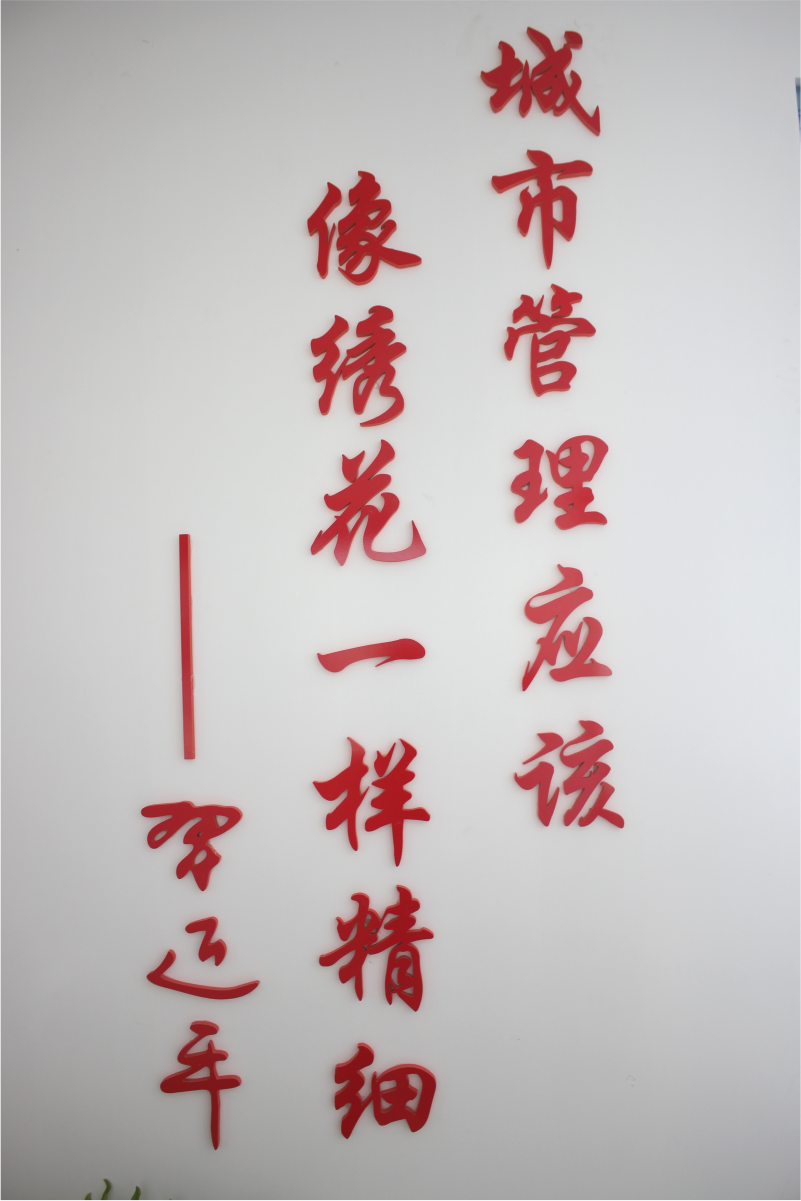 城市管理应该
像绣花一样精细
——習近平